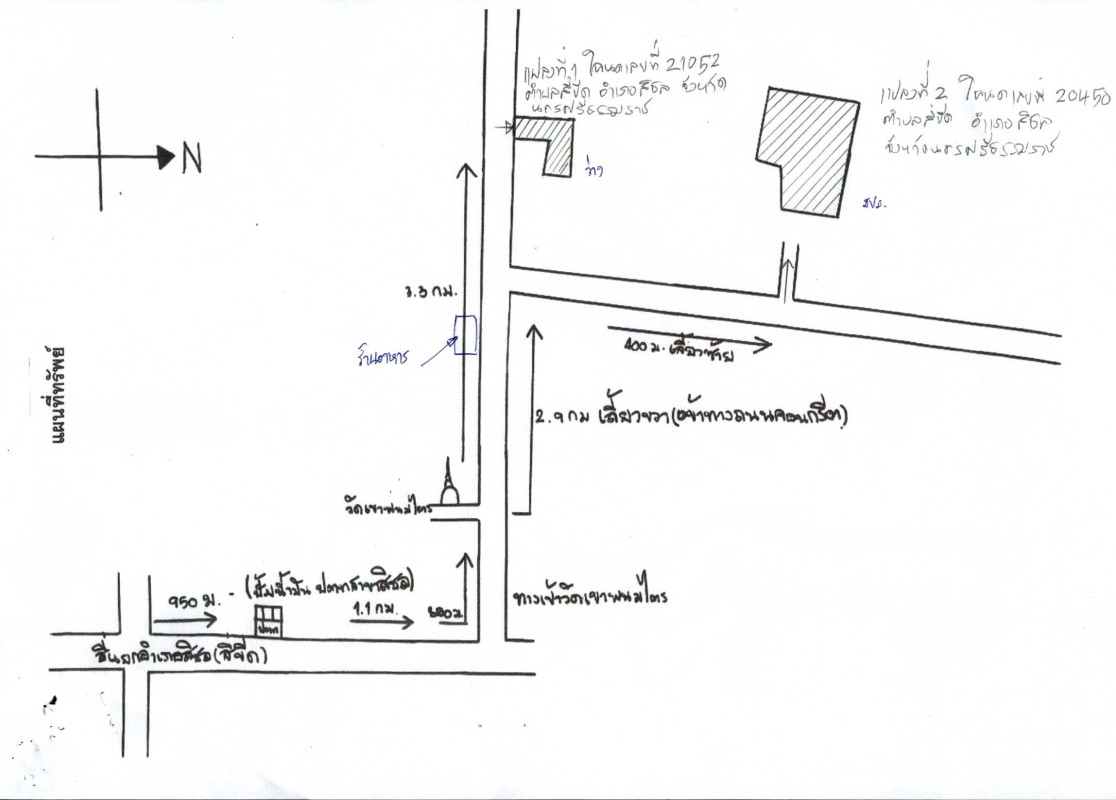 แปลงที่ 1 โฉนดเลขที่ 21052
ตำบลสี่ขีด อำเภอสิชล จังหวัด
นครศรีธรรมราช
แปลงที่ 2 โฉนดเลขที่ 20450
ตำบลสี่ขีด อำเภอสิชล
จังหวัดนครศรีธรรมราช
N
ว่าง
สปก.
3.3 กม.
ร้านอาหาร
400 ม. เลี้ยวซ้าย
แผนที่ทรัพย์
2.9 กม เลี้ยวขวา (เข้าทางถนนคอนกรีต)
วัดเขาพนมไตร
950 ม. - (ปั้มน้ำมัน ปตท สาขาสิชล)
1.1 กม.
ปตท
ทางเข้าวัดเขาพนมไตร
สี่แยกอำเภอสิชล (สี่ขีด)